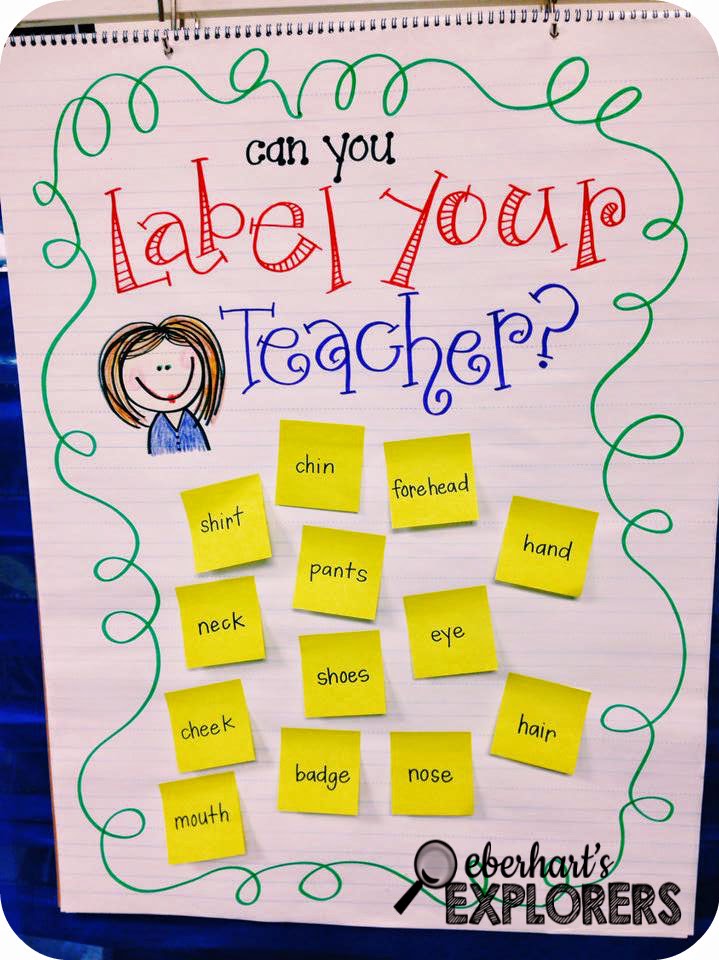 can you
Label Your
Teacher?
chin
forehead
shirt
hand
pants
neck
eye
shoes
cheek
hair
badge
nose
mouth
eberhart's
EXPLORERS